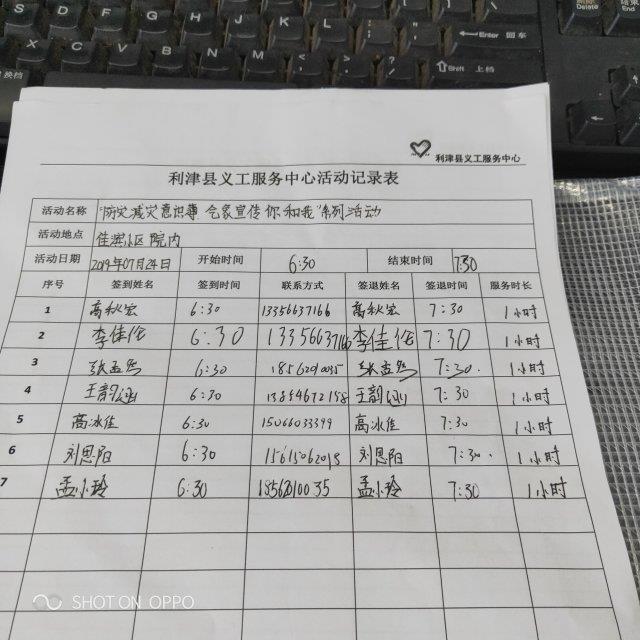 S D F G H J K L Enter 回车
X C V B N M Shift 上档
Delete End
换档
利津县义工服务中心
利津县义工服务中心活动记录表
活动名称 "防灾减灾 宣传 你和我"系列活动
活动地点 佳 小区院内
活动日期 2019年07月24日 开始时间 6:30 结束时间 7:30
序号 签到姓名 签到时间 联系方式 签退姓名 签退时间 服务时长
1 高秋宏 6:30 13356637166 高秋宏 7:30 1小时
2 李佳伦 6:30 13356637166 李佳伦 7:30 1小时
3 张孟 6:30 张孟 7:30. 1小时
4 王韵涵 6:30 王韵涵 7:30 1小时
5 高冰佳 6:30 15066033399 高冰佳 7:30 1小时
6 刘恩阳 6:30 刘恩阳 7:30. 1小时
7 孟小玲 6:30 孟小玲 7:30 1小时
SHOT ON OPPO